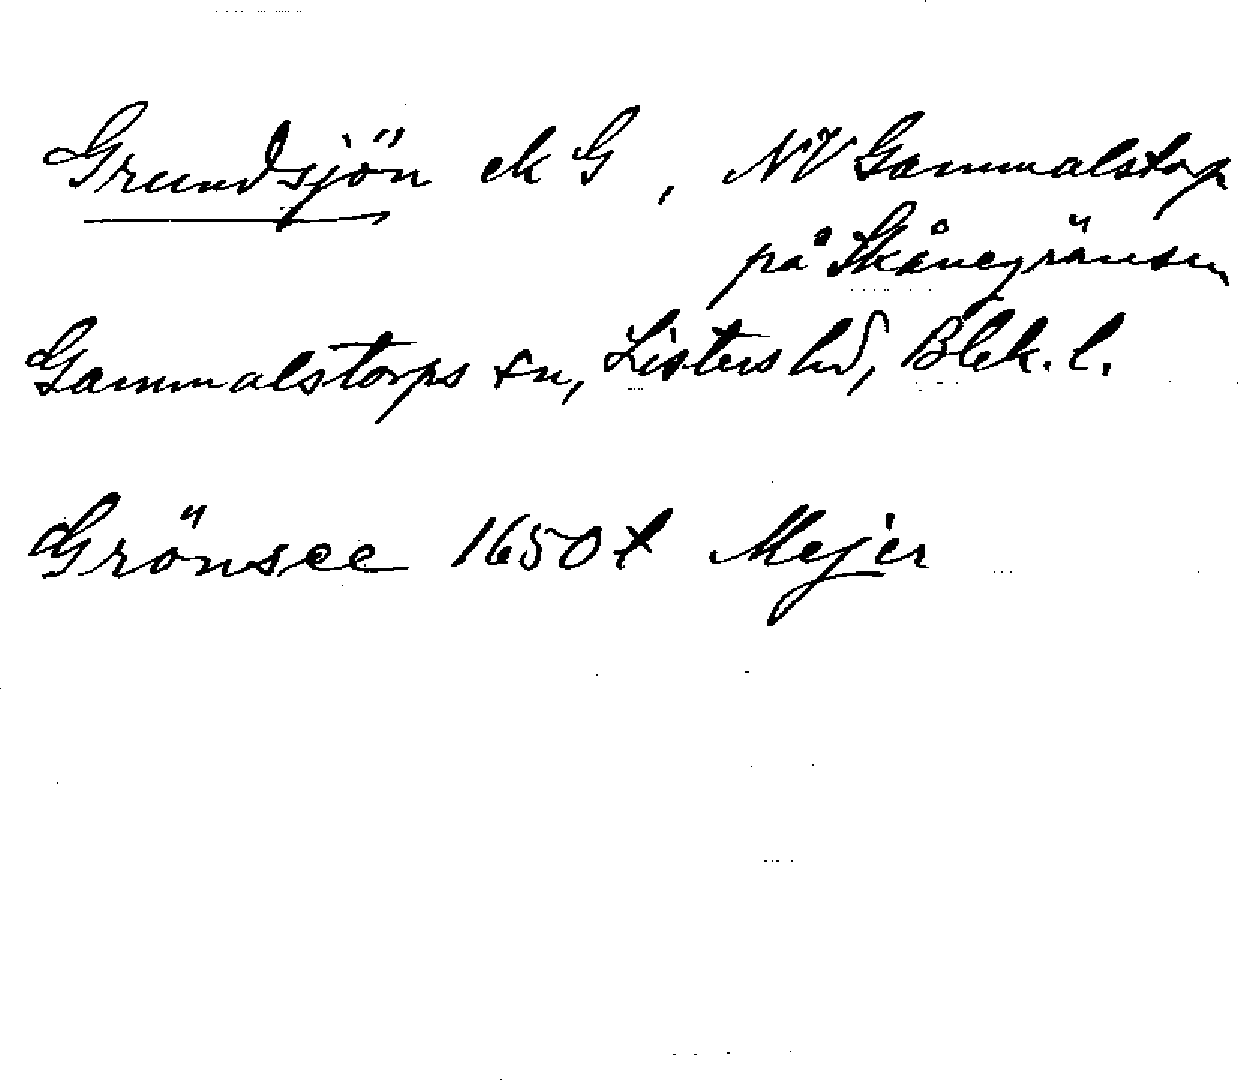 Grundsjön ek G, NV Gammalstorp
på Skånegränsen
Gammalstorps sn, Listers hd, Blek. l.
Grönsee 1650 t Mejer